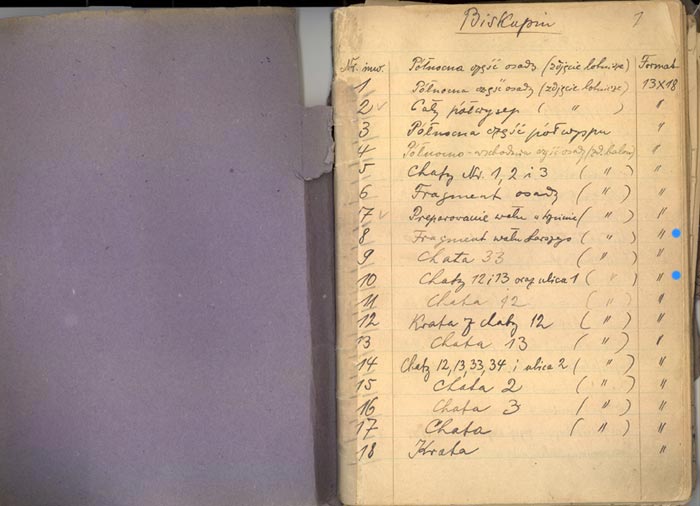 Biskupin 1
Nr. inw. Północna część osady (zdjęcie lotnicze) Format
1 Północna część osady (zdjęcie lotnicze) 13X18
2 Cały półwysep ( " ) "
3 Północna część półwyspu "
4 Północno-wschodnia część osady (zd. balon) "
5 Chaty Nr. 1, 2 i 3 ( " ) "
6 Fragment osady ( " ) "
7 Preparowanie wału ( " ) "
8 Fragment wału starszego ( " ) "
9 Chata 33 ( " ) "
10 Chaty 12 i 13 oraz ulica 1 ( " ) "
11 Chata 12 ( " ) "
12 Krata z chaty 12 ( " ) "
13 Chata 13 ( " ) "
14 Chaty 12, 13, 33, 34 i ulica 2 ( " ) "
15 Chata 2 ( " ) "
16 Chata 3 ( " ) "
17 Chata ( " ) "
18 Krata "